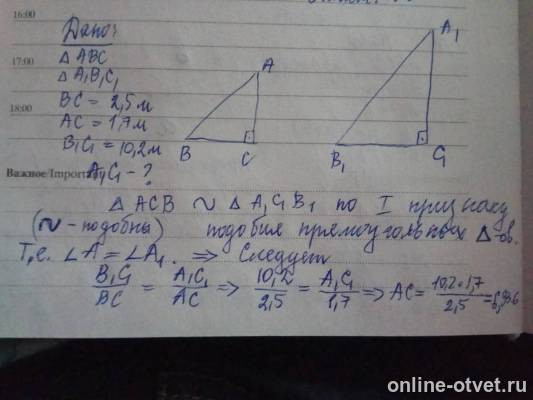 16:00
Дано:
17:00
△ ABC
△ A₁B₁C₁
18:00
BC = 2,5 м
AC = 1,7 м
B₁C₁ = 10,2 м
Важное/Import
A₁C₁ - ?
A
B
C
A₁
B₁
C₁
△ ACB ∾ △ A₁C₁B₁ по I признаку
(∾ - подобны) подобия прямоугольных △-ов.
Т.е. ∠A = ∠A₁. ⇒ Следует
B₁C₁/BC = A₁C₁/AC ⇒ 10,2/2,5 = A₁C₁/1,7 ⇒ AC = 10,2·1,7/2,5 = 6,936
online-otvet.ru